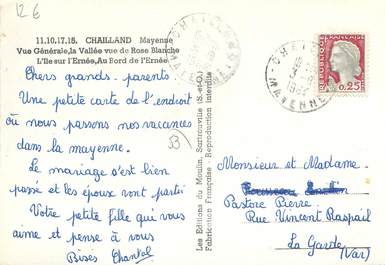 12 6
11.10.17.18. CHAILLAND Mayenne
Vue Générale, la Vallée vue de Rose Blanche
L'Ile sur l'Ernée, Au Bord de l'Ernée
Chers grands-parents
Une petite carte de l'endroit
où nous passons nos vacances
dans la mayenne.
Le mariage s'est bien
passé et les époux sont parti
Votre petite fille qui vous
aime et pense à vous
Bises Chantal
53
Les Editions du Moulin, Sartrouville (S.-et-O.)
Fabrication Française, Reproduction interdite
MAYENNE
MAYENNE
0,25
Monsieur et Madame
Pastore Pierre
Rue Vincent Raspail
La Garde
(Var)